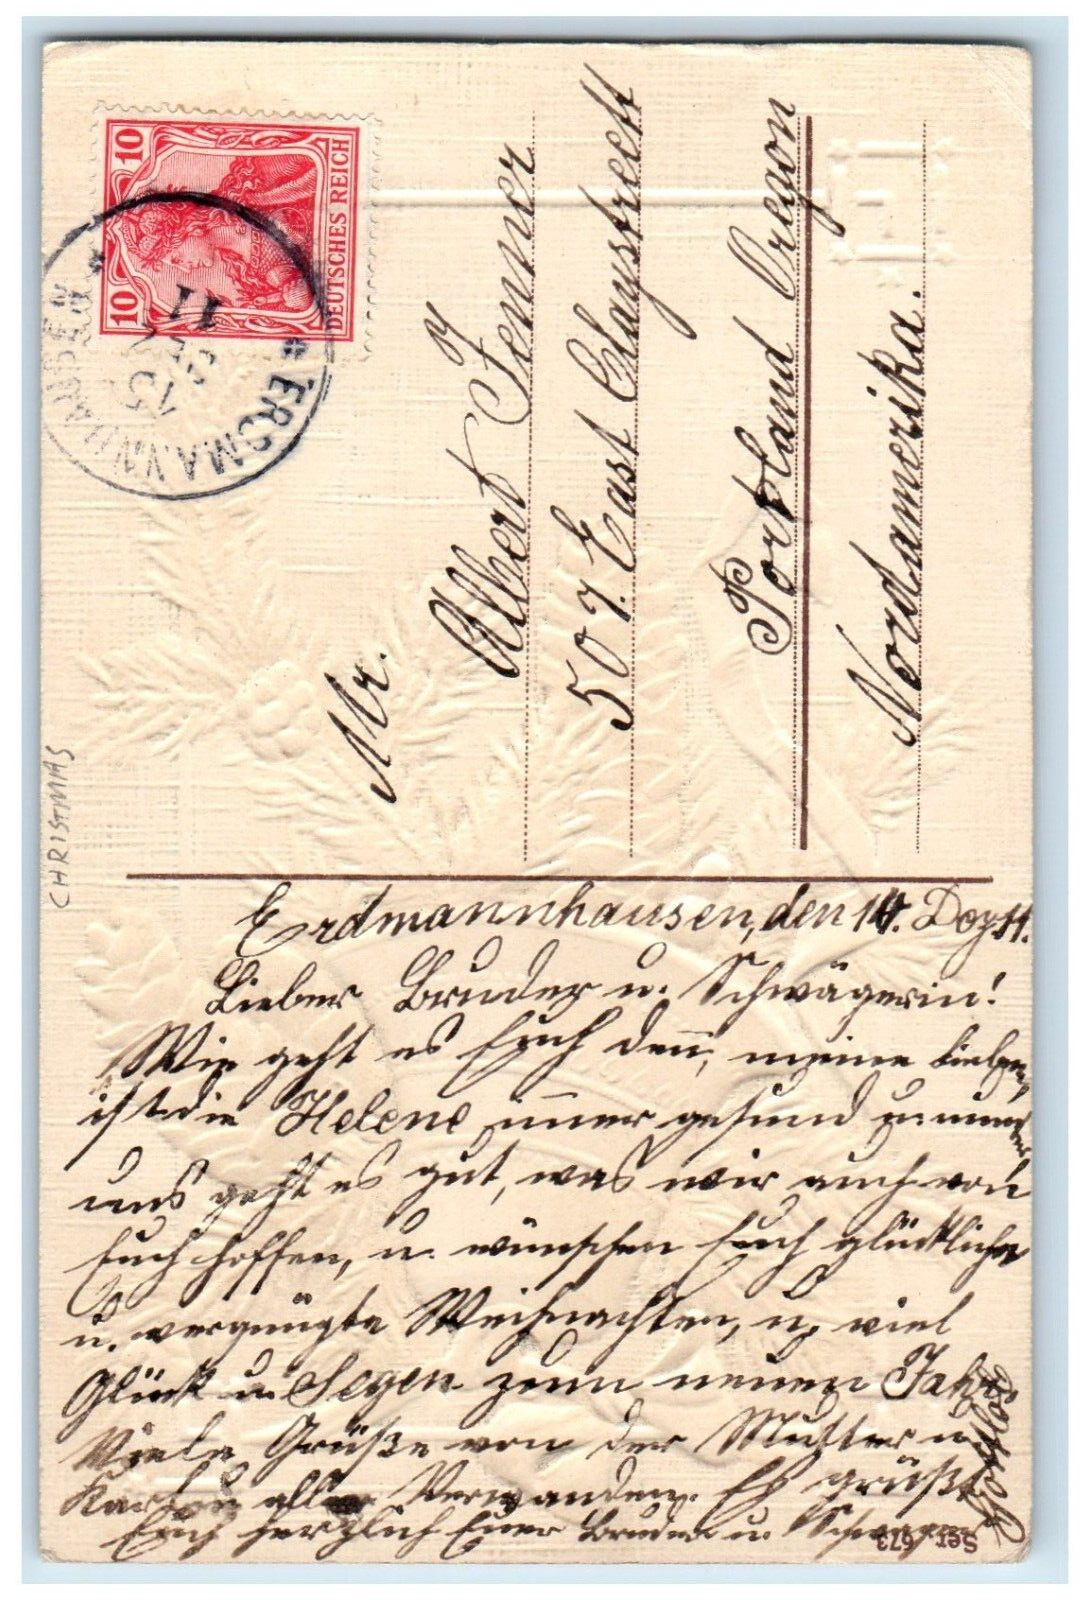 10
10
DEUTSCHES REICH
ERDMANNHAUSEN
15
11
CHRISTMAS
Mr.
Albert Jenner
507. East Claystreett
Portland Oregon
Nordamerika.
Erdmannhausen, den 14. Dez 11.
Lieber Bruder u. Schwägerin!
Wie geht es Euch den̄, meine Lieben,
ist die Helene im̄er gesund u. munter
uns geht es gut, was wir auch von
Euch hoffen, u. wünschen Euch glückliche
u. vergnügte Weihnachten, u. viel
Glück u. Segen zum neuen Jahr.
Viele Grüße von der Mutter u.
allen Verwanden. Es grüßt
Euch herzlich Euer Bruder u.
Gottlob
Ser. 673